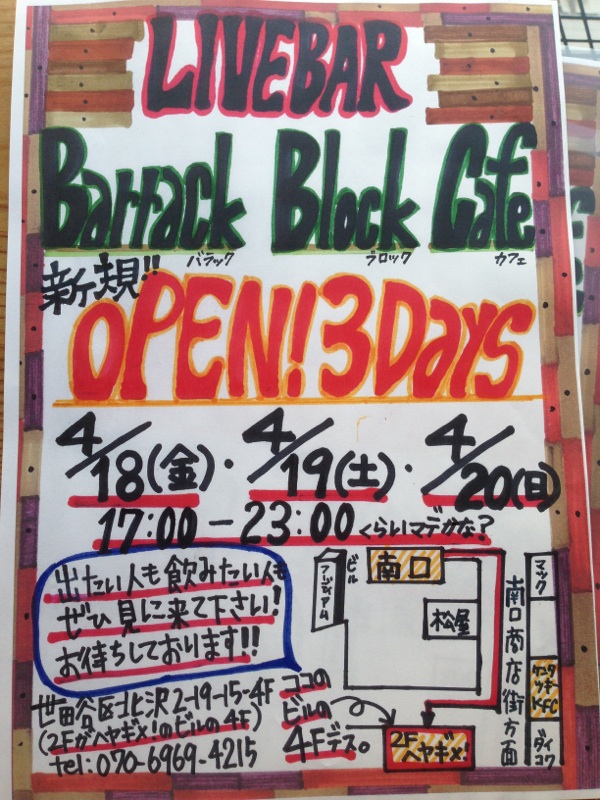 LIVEBAR
Barrack Block Cafe
バラック ブロック カフェ
新規!!
OPEN! 3Days
4/18(金)・4/19(土)・4/20(日)
17:00-23:00くらいマデかな?
出たい人も飲みたい人も
ぜひ見に来て下さい!
お待ちしております!!
世田谷区北沢2-19-15-4F
(2Fがヘヤギメ!のビルの4F)
tel:070-6969-4215
ココの
ビルの
4Fデス。
ビル
南口
松屋
2F
ヘヤギメ!
南口商店街方面
マック
ケンタ
ッキー
KFC
ダイコク